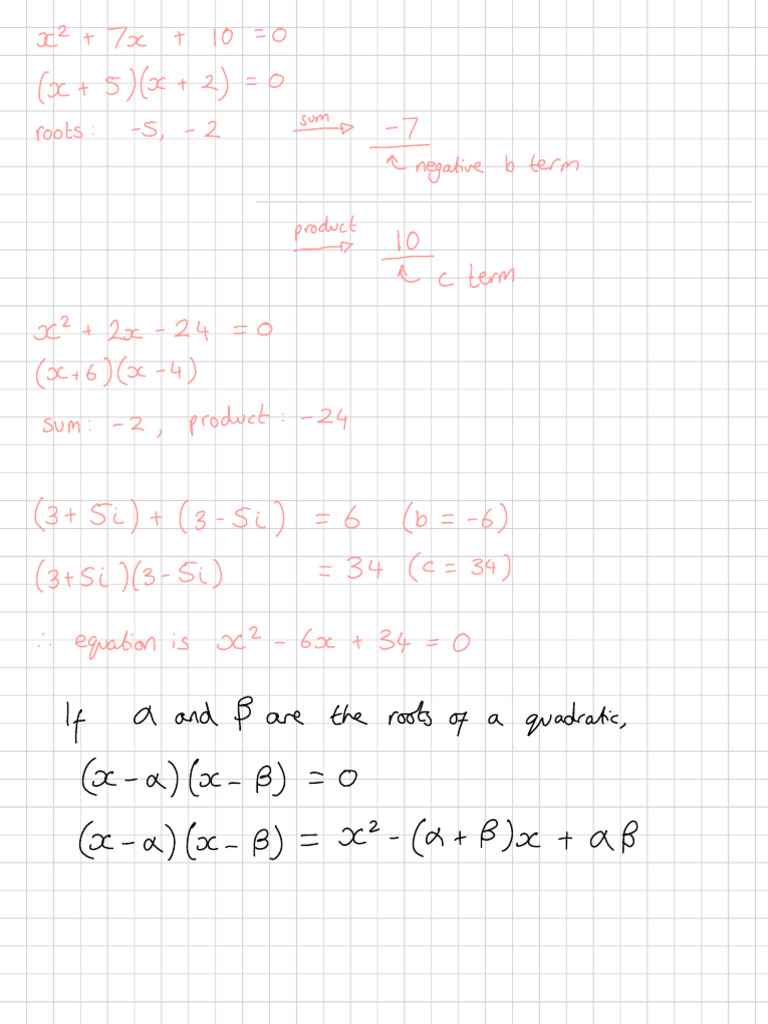 x² + 7x + 10 = 0
(x + 5)(x + 2) = 0
roots: -5, -2 sum → -7
↖ negative b term
product → 10
↖ c term
x² + 2x - 24 = 0
(x+6)(x-4)
sum: -2, product: -24
(3+5i)+(3-5i) = 6 (b = -6)
(3+5i)(3-5i) = 34 (c = 34)
∴ equation is x² - 6x + 34 = 0
If α and β are the roots of a quadratic,
(x-α)(x-β) = 0
(x-α)(x-β) = x² - (α + β)x + αβ